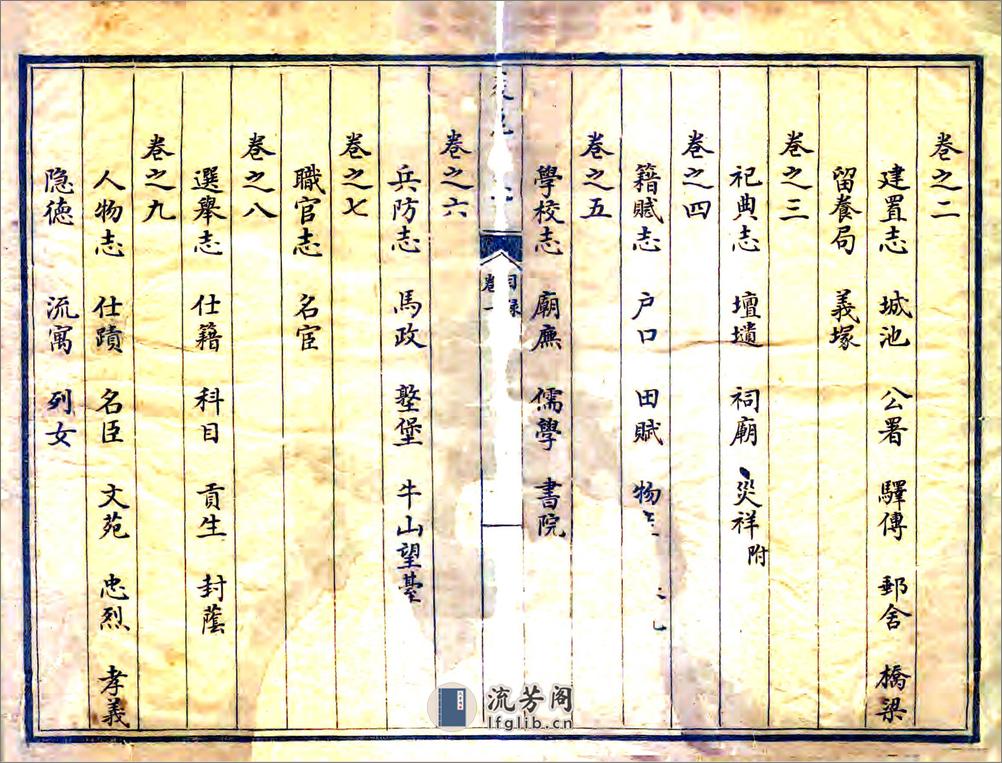 卷之二
建置志 城池 公署 驛傳 郵舍 橋梁
留養局 義塚
卷之三
祀典志 壇壝 祠廟 災祥附
卷之四
籍賦志 户口 田賦 物
卷之五
學校志 廟廡 儒學 書院
目錄
卷一
卷之六
兵防志 馬政 墼堡 牛山望臺
卷之七
職官志 名宦
卷之八
選舉志 仕籍 科目 貢生 封蔭
卷之九
人物志 仕蹟 名臣 文苑 忠烈 孝義
隐德 流寓 列女
流芳阁
lfglib.cn